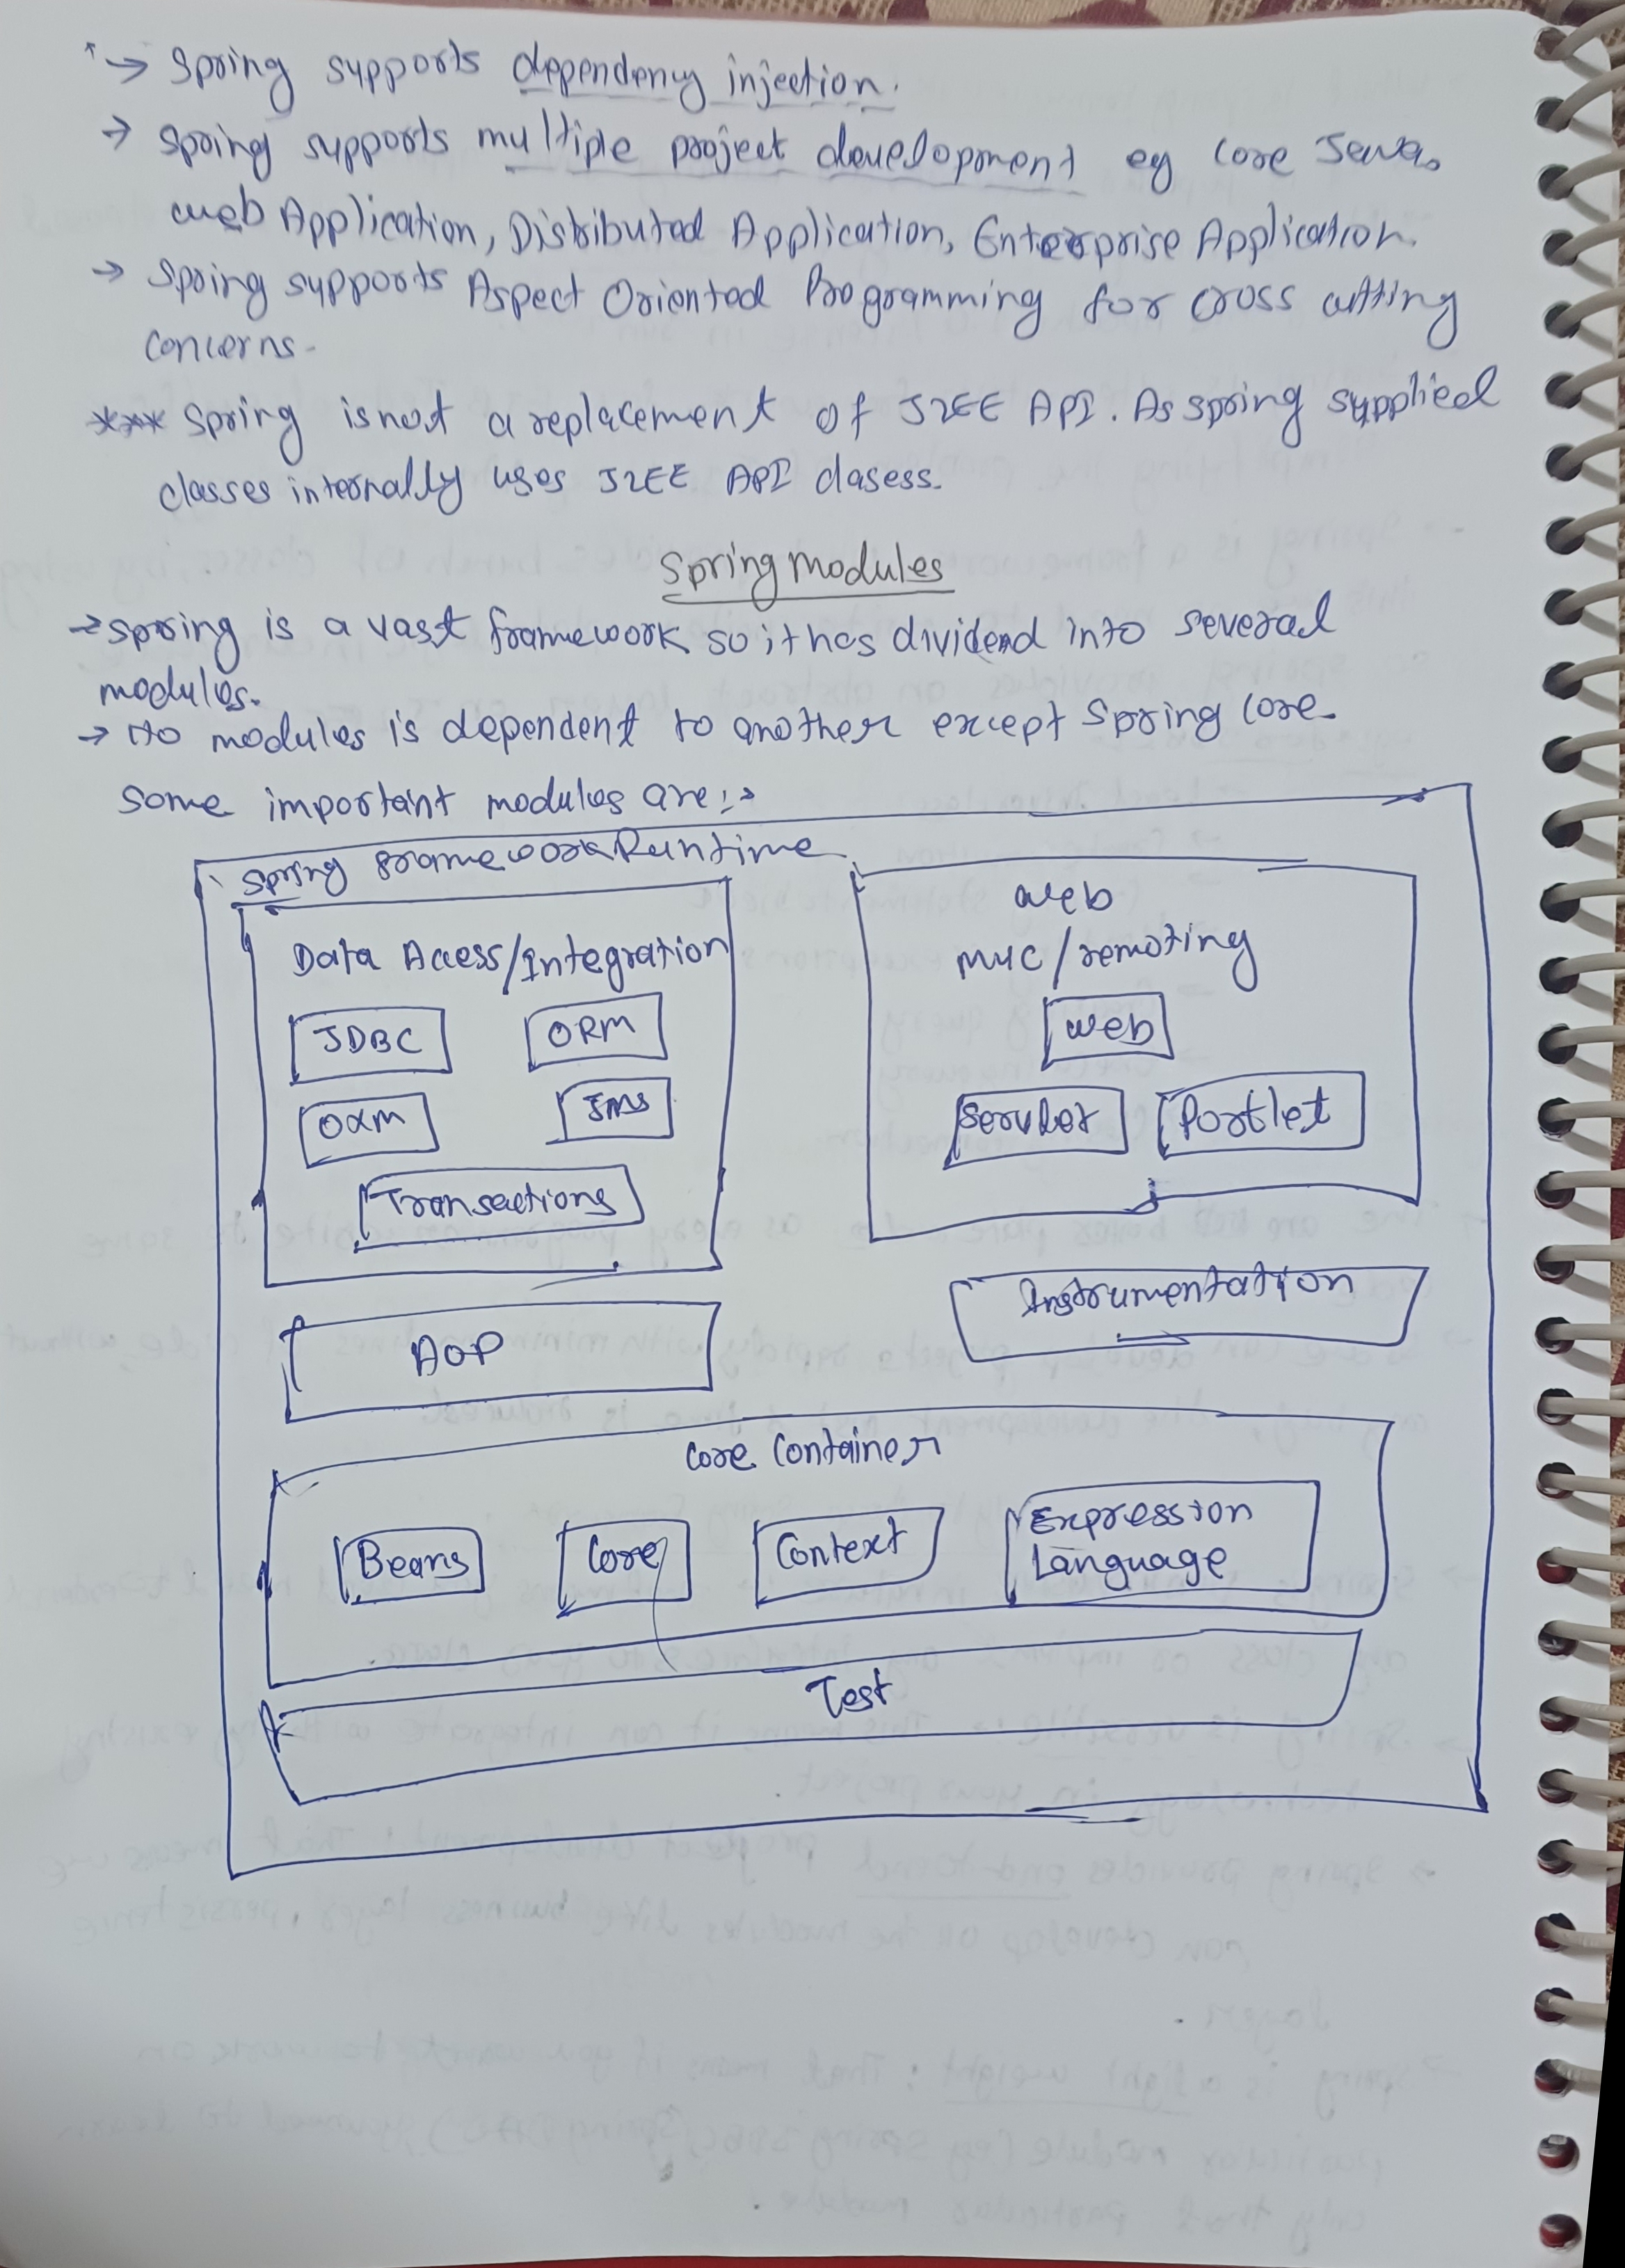 → Spring supports dependency injection.
→ Spring supports multiple project development eg Core Java,
web Application, Distributed Application, Enterprise Application.
→ Spring supports Aspect Oriented Programming for cross cutting
concerns.
*** Spring is not a replacement of J2EE API. As spring supplied
classes internally uses J2EE API clasess.
Spring modules
→ spring is a vast framework so it has dividend into several
modules.
→ No modules is dependent to another except Spring Core.
Some important modules are:→
Spring Framework Runtime
Data Access/Integration
JDBC
ORM
OXM
JMS
Transactions
Web
MVC/remoting
Web
Servlet
Portlet
AOP
Instrumentation
Core Container
Beans
Core
Context
Expression
Language
Test